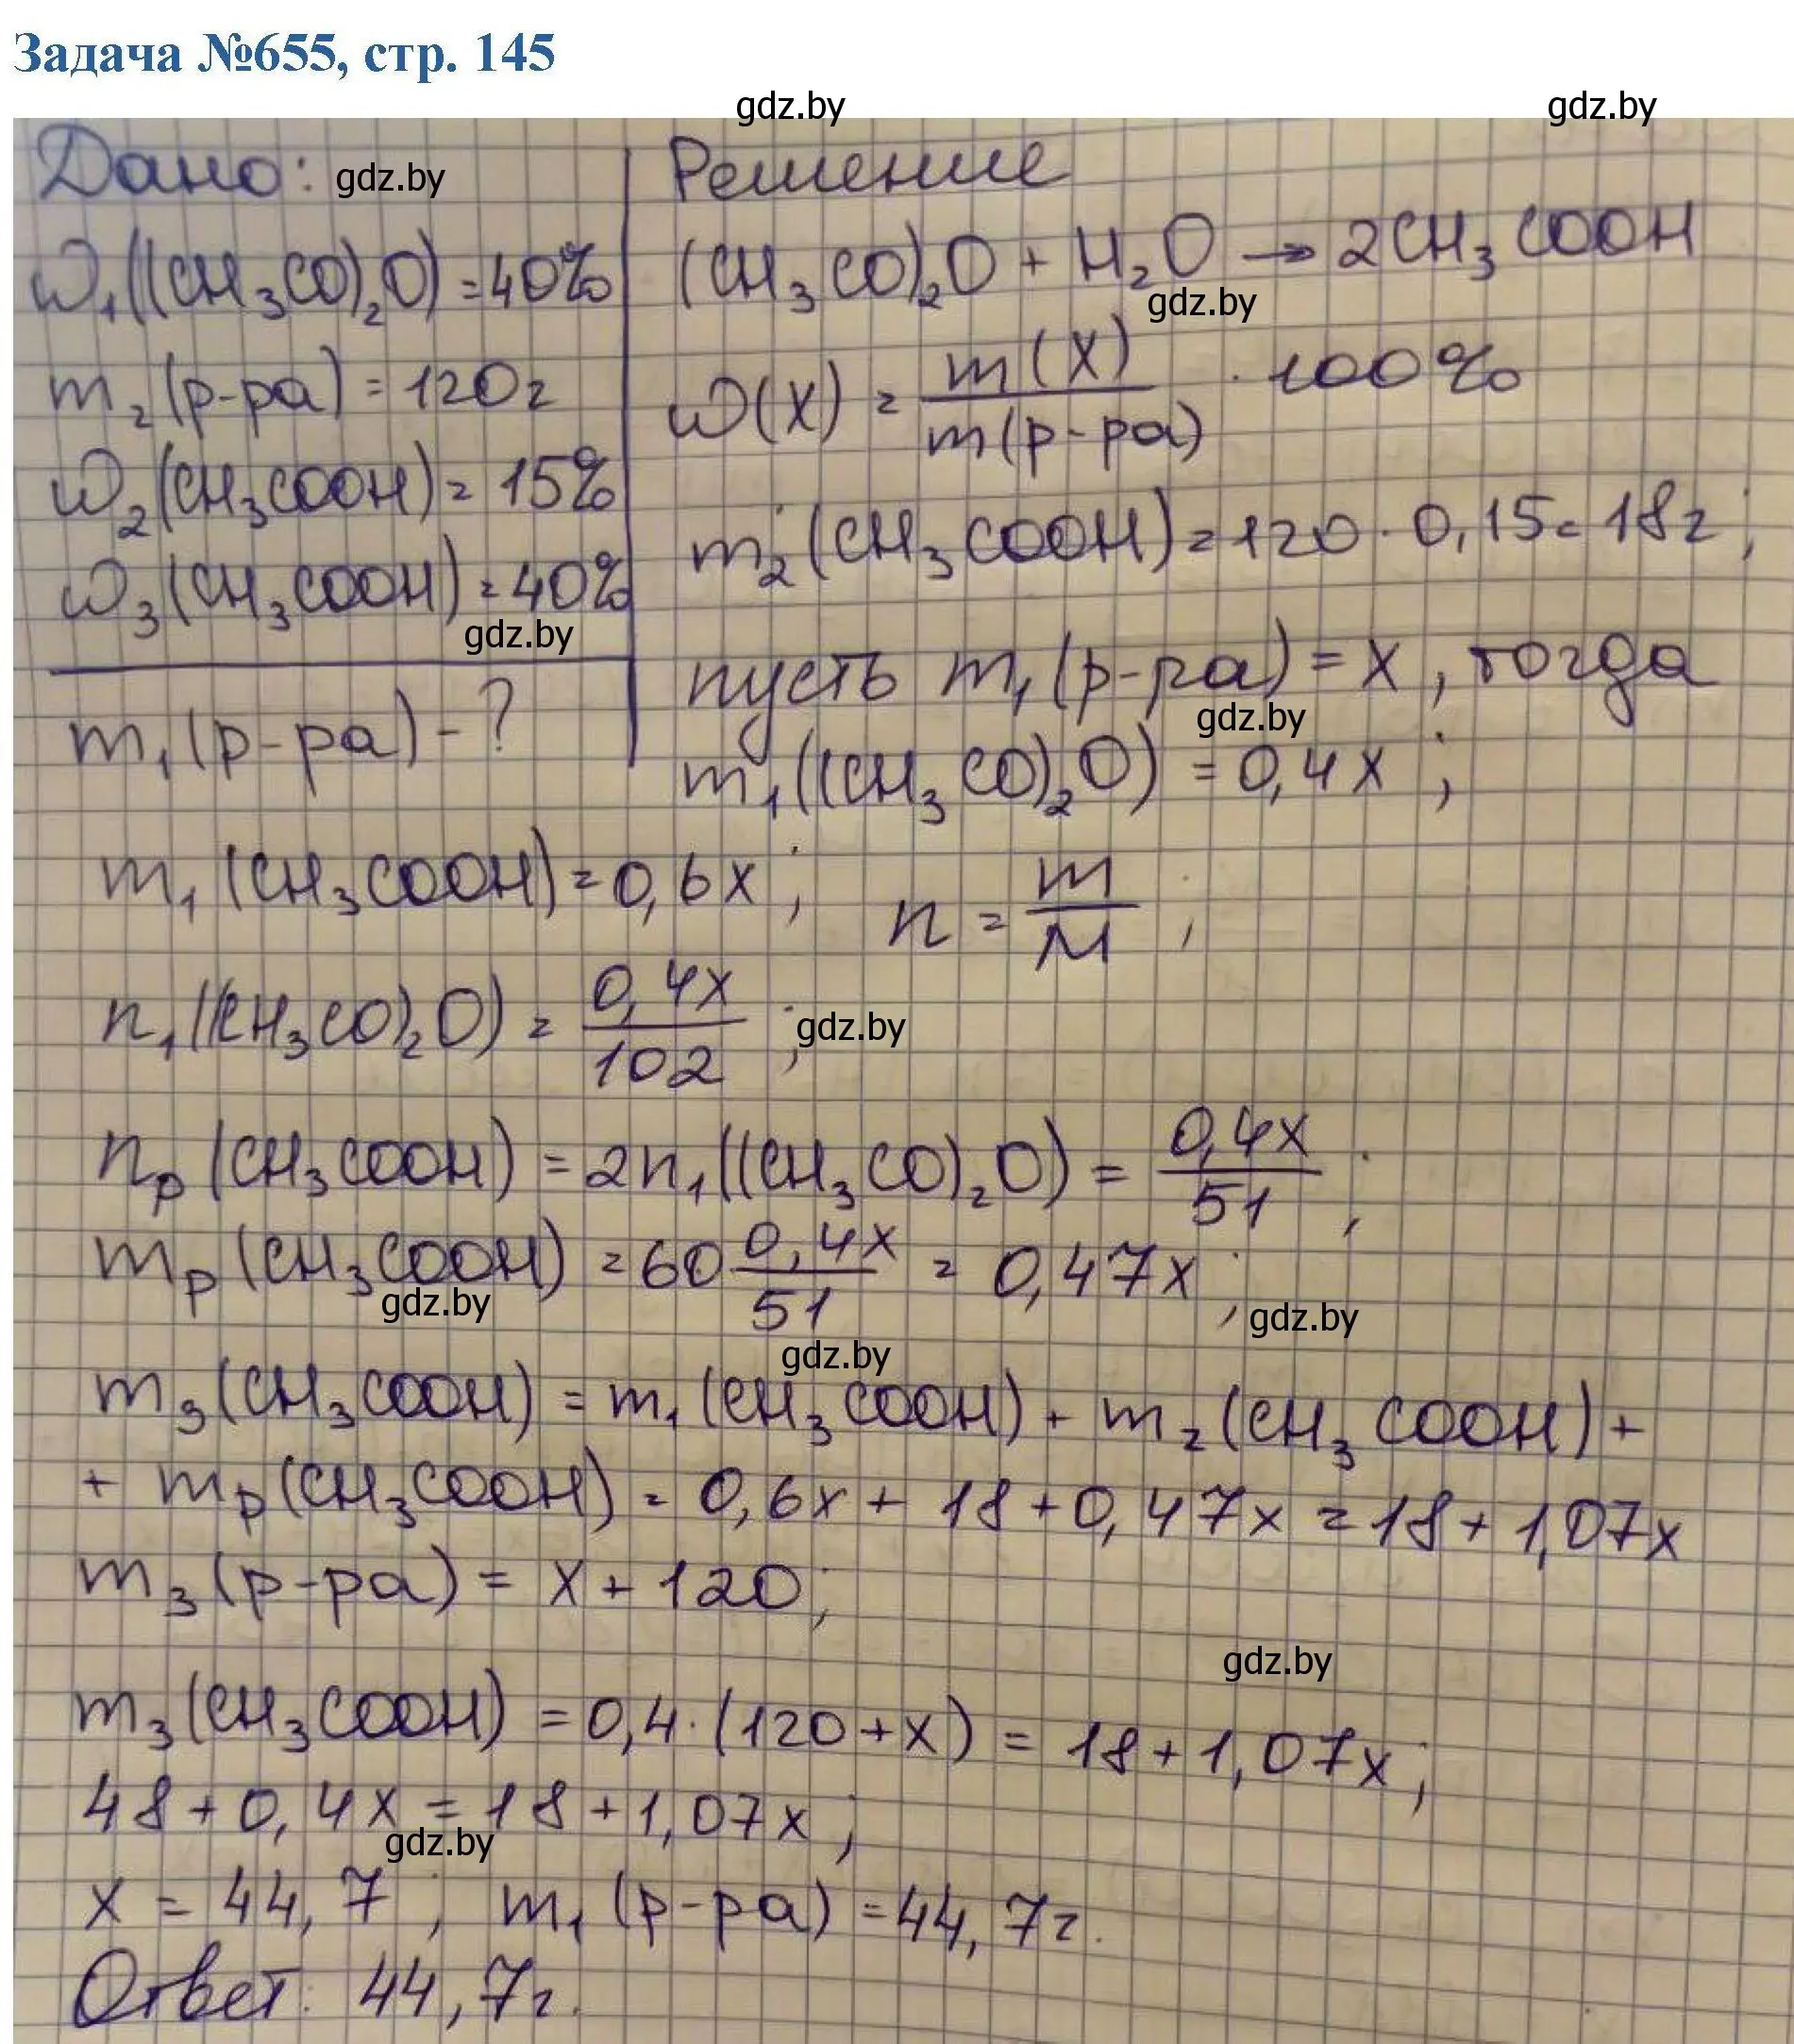 Задача №655, стр. 145
gdz.by gdz.by
Дано: gdz.by
ω₁((CH₃CO)₂O) = 40%
m₂(р-ра) = 120г
ω₂(CH₃COOH) = 15%
ω₃(CH₃COOH) = 40%
gdz.by
m₁(р-ра) - ?
Решение
(CH₃CO)₂O + H₂O → 2CH₃COOH
gdz.by
ω(X) = m(X)/m(р-ра) · 100%
m₂(CH₃COOH) = 120 · 0,15 = 18г;
пусть m₁(р-ра) = x, тогда
gdz.by
m₁((CH₃CO)₂O) = 0,4x;
m₁(CH₃COOH) = 0,6x; n = m/M;
n₁((CH₃CO)₂O) = 0,4x/102; gdz.by
nр(CH₃COOH) = 2n₁((CH₃CO)₂O) = 0,4x/51;
mр(CH₃COOH) = 60 0,4x/51 = 0,47x;
gdz.by gdz.by
gdz.by
m₃(CH₃COOH) = m₁(CH₃COOH) + m₂(CH₃COOH) +
+ mр(CH₃COOH) = 0,6x + 18 + 0,47x = 18 + 1,07x
m₃(р-ра) = x + 120;
gdz.by
m₃(CH₃COOH) = 0,4 · (120 + x) = 18 + 1,07x;
48 + 0,4x = 18 + 1,07x;
gdz.by
x = 44,7; m₁(р-ра) = 44,7г.
Ответ: 44,7г.